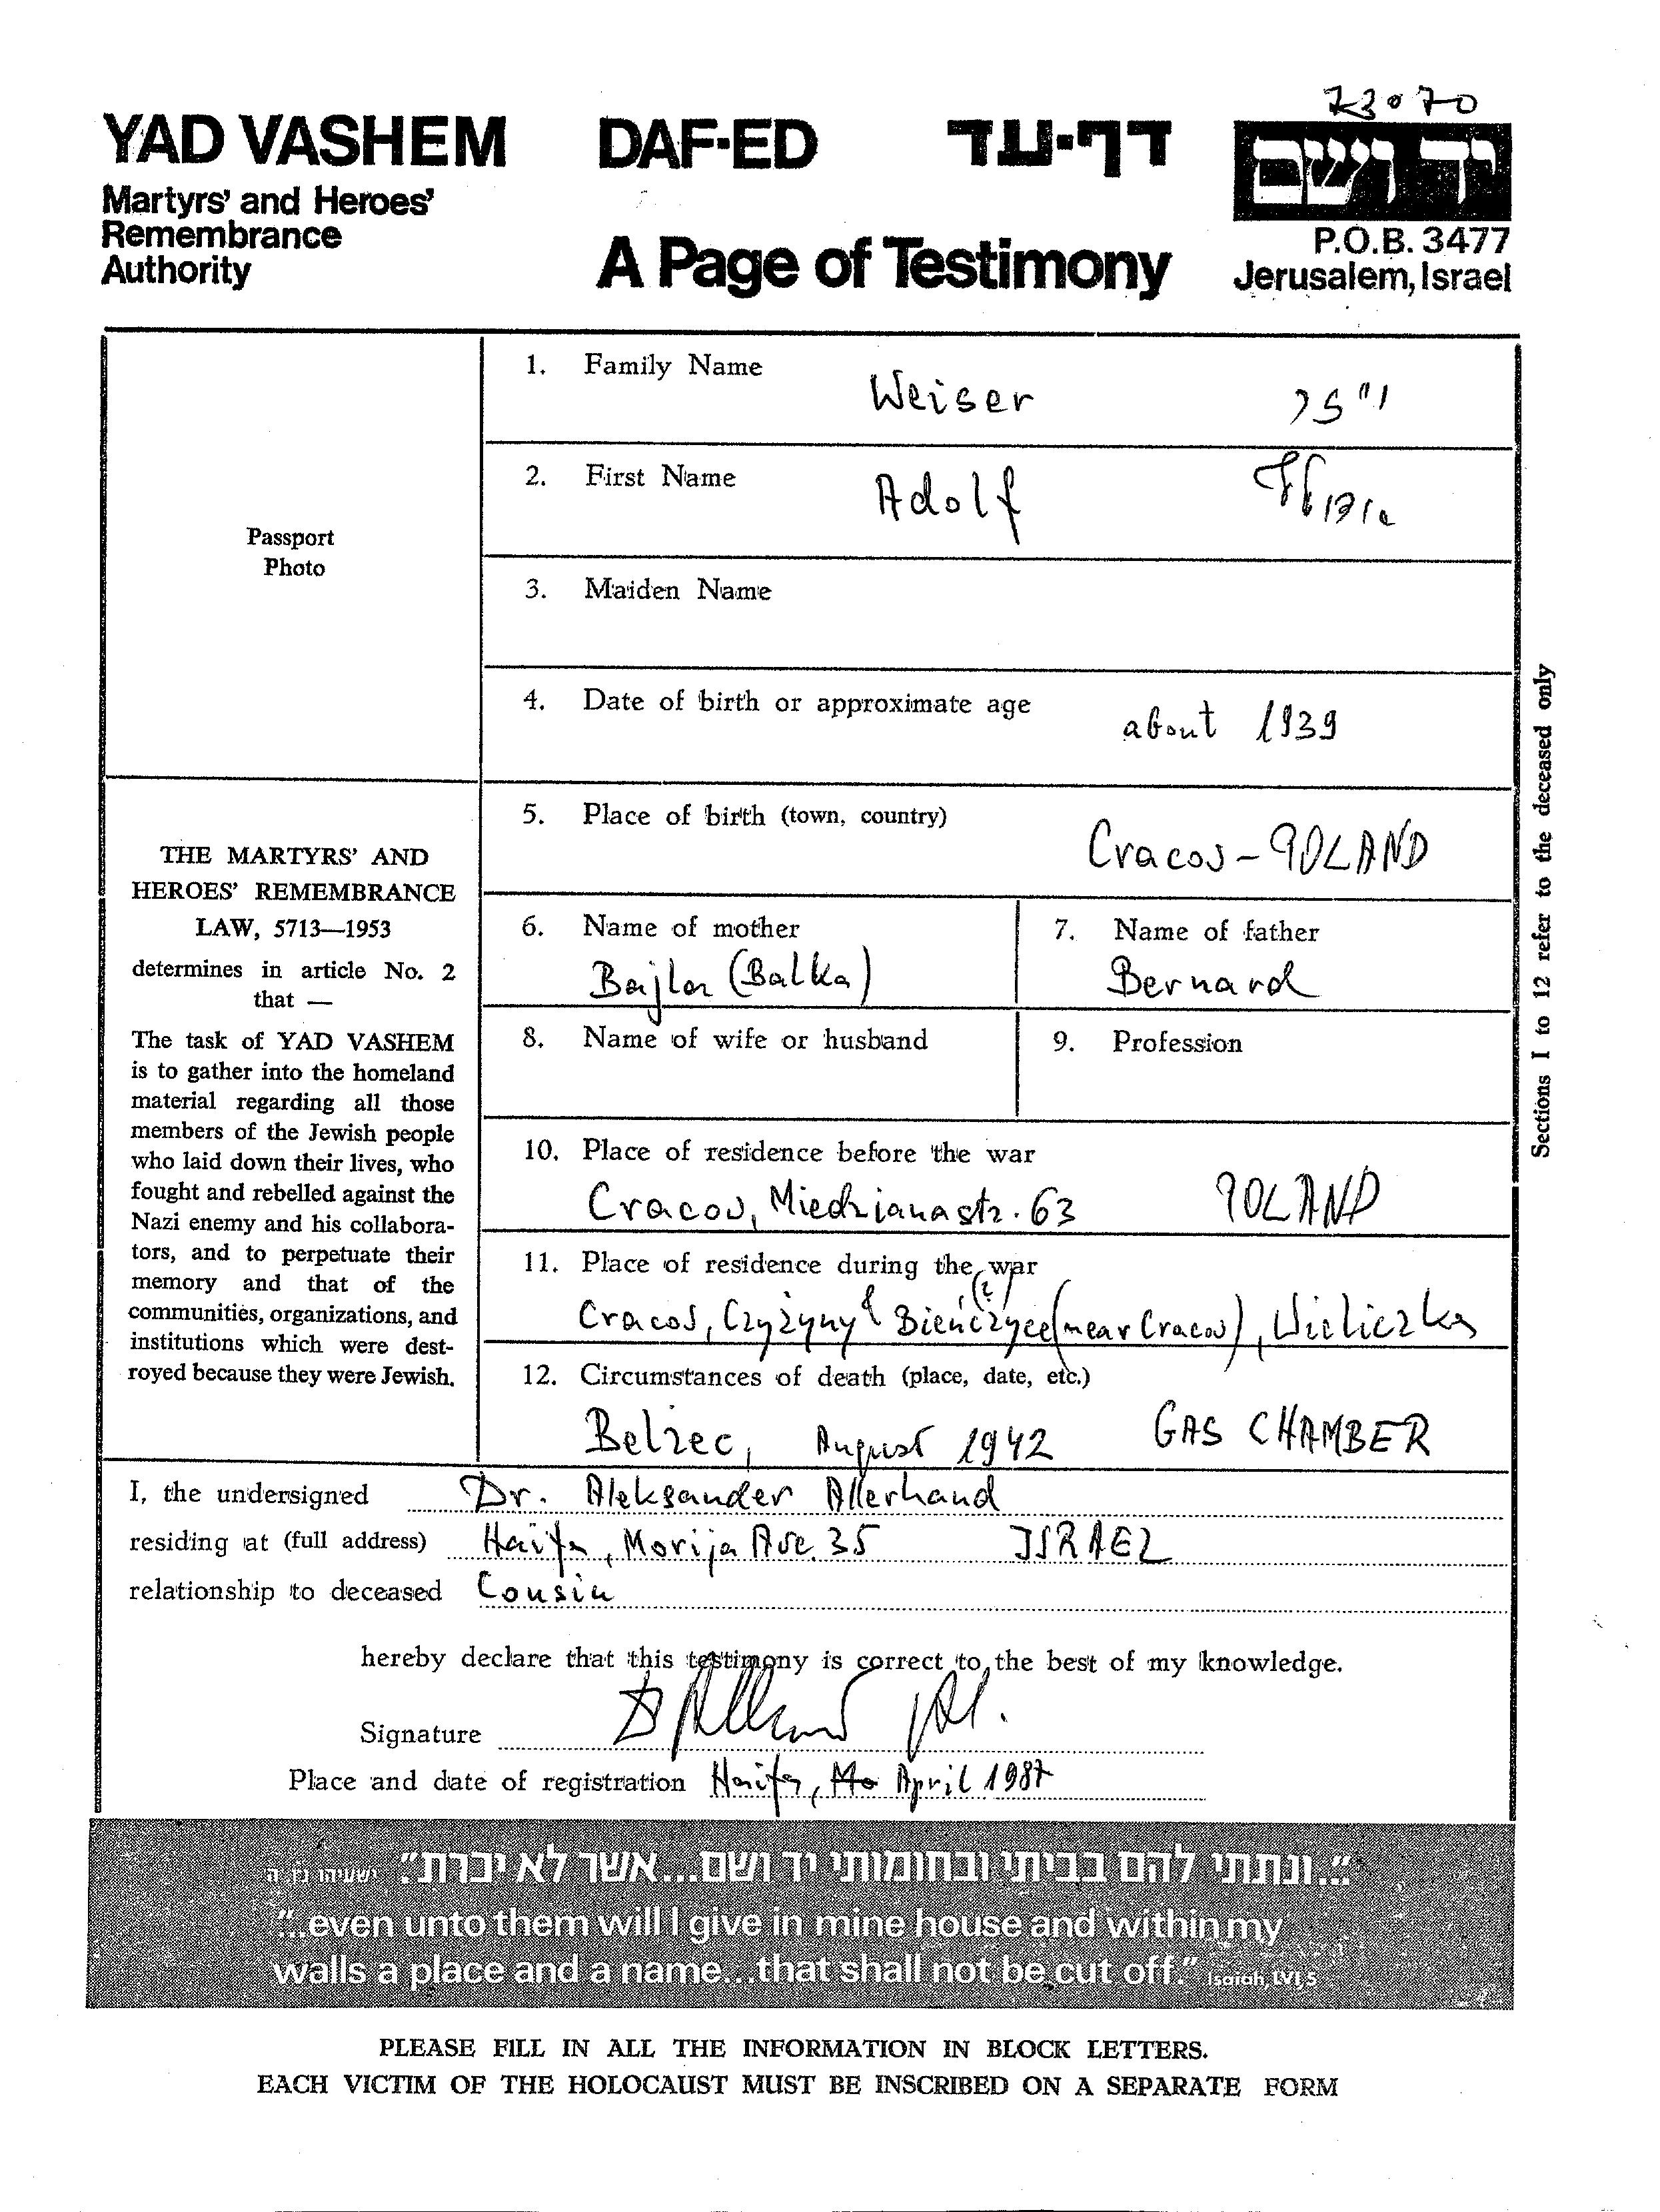 73070
YAD VASHEM DAF-ED דף-עד יד ושם
Martyrs' and Heroes'
Remembrance
Authority
A Page of Testimony
P.O.B. 3477
Jerusalem, Israel
Passport
Photo
1. Family Name
Weiser
2. First Name
Adolf
3. Maiden Name
4. Date of birth or approximate age
about 1939
5. Place of birth (town, country)
Cracow - POLAND
6. Name of mother
Bajla (Balka)
7. Name of father
Bernard
8. Name of wife or husband
9. Profession
10. Place of residence before the war
Cracow, Miedziana str. 63 POLAND
11. Place of residence during the war
(?)
Cracow, Czyżyny & Bieńczyce (near Cracow), Wieliczka
12. Circumstances of death (place, date, etc.)
Belzec, August 1942 GAS CHAMBER
Sections 1 to 12 refer to the deceased only
THE MARTYRS' AND
HEROES' REMEMBRANCE
LAW, 5713—1953
determines in article No. 2
that —
The task of YAD VASHEM
is to gather into the homeland
material regarding all those
members of the Jewish people
who laid down their lives, who
fought and rebelled against the
Nazi enemy and his collabora-
tors, and to perpetuate their
memory and that of the
communities, organizations, and
institutions which were dest-
royed because they were Jewish.
I, the undersigned Dr. Aleksander Allerhand
residing at (full address) Haifa, Morija Ave. 35 ISRAEL
relationship to deceased Cousin
hereby declare that this testimony is correct to the best of my knowledge.
Signature
Place and date of registration Haifa, April 1987
"...ונתתי להם בביתי ובחומותי יד ושם...אשר לא יכרת". ישעיהו נו, ה
"...even unto them will I give in mine house and within my
walls a place and a name...that shall not be cut off." Isaiah, LVI, 5
PLEASE FILL IN ALL THE INFORMATION IN BLOCK LETTERS.
EACH VICTIM OF THE HOLOCAUST MUST BE INSCRIBED ON A SEPARATE FORM